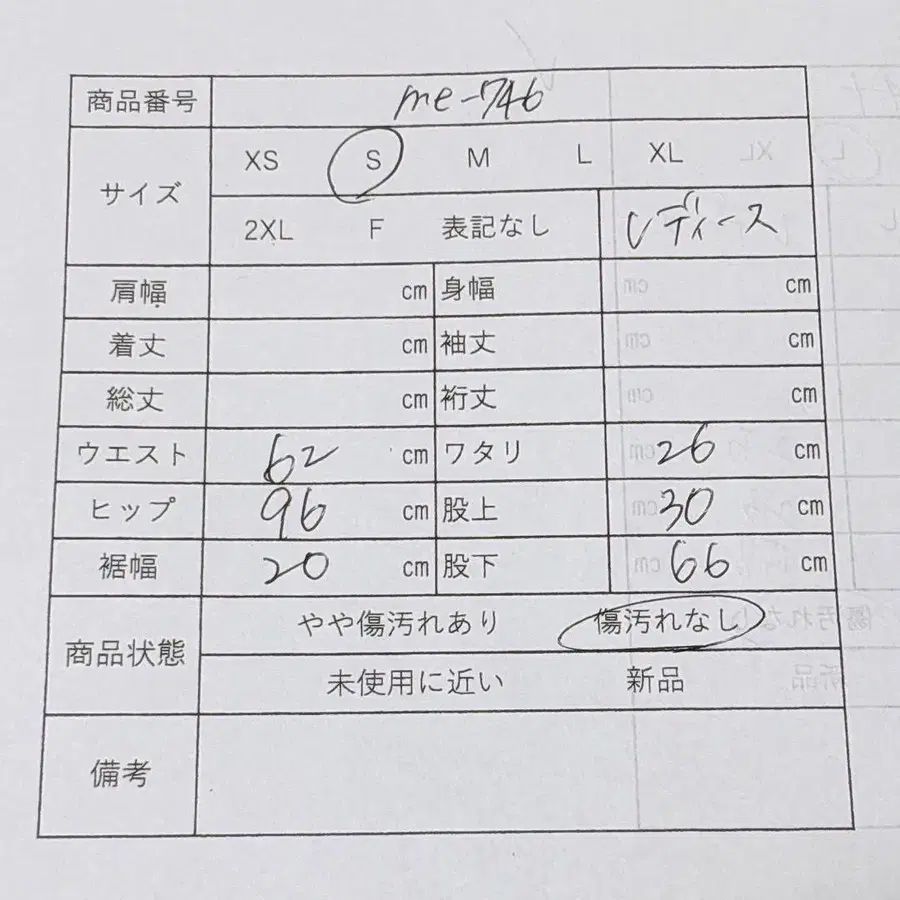 商品番号 me-746
サイズ XS S M L XL
2XL F 表記なし レディース
肩幅 cm 身幅 cm
着丈 cm 袖丈 cm
総丈 cm 裄丈 cm
ウエスト 62 cm ワタリ 26 cm
ヒップ 96 cm 股上 30 cm
裾幅 20 cm 股下 66 cm
商品状態 やや傷汚れあり 傷汚れなし
未使用に近い 新品
備考